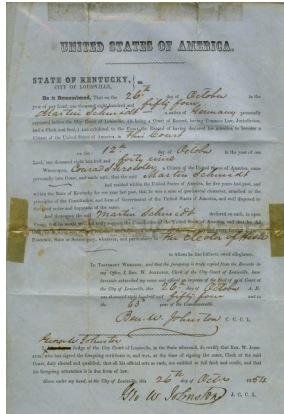 UNITED STATES OF AMERICA.
STATE OF KENTUCKY,
CITY OF LOUISVILLE,
Be it Remembered, That on the 26th day of October in the
year of our Lord, one thousand eight hundred and fifty four
Martin Schmidt a native of Germany personally
appeared before the City Court of Louisville, this being a Court of Record, having Common Law Jurisdiction,
and a Clerk and Seal, and exhibited to the Court the Record of having declared his intention to become a
Citizen of the United States of America, in this Court
on the 12th day of October in the year of our
Lord, one thousand eight hundred and forty nine
Whereupon, Conrad Schroder, a Citizen of the United States of America, came
personally into Court, and made oath, that the said Martin Schmidt
had resided within the United States of America, for five years last past, and
within the State of Kentucky for one year last past, that he was a man of good moral character, attached to the
principles of the Constitution, and form of Government of the United States of America, and well disposed to
the good order and happiness of the same.
And thereupon the said Martin Schmidt declared on oath, in open
Court, that he would support the Constitution of the United States of America, and that he
Potentate, State or Sovereignty, whatever, and particularly to The Elector of Hesse
to whom he was hitherto owed allegiance.
In Testimony Whereof, and that the foregoing is truly copied from the Records in
my Office, I Ben. W. Johnston, Clerk of the City Court of Louisville, have
hereunto subscribed my name and affixed an impress of the Seal of said Court at
the City of Louisville, this 26th day of October A.D.
one thousand eight hundred and fifty four and in the
63rd year of the Commonwealth.
Ben. W. Johnston C. C. C. L.
George W Johnston
Judge of the City Court of Louisville, in the State aforesaid, do certify that Ben. W. Johnston,
who has signed the foregoing certificate is, and was, at the time of signing the same, Clerk of the said
Court, duly elected and qualified, that all his official acts as such, are entitled to full faith and credit, and that
his foregoing attestation is in due form of law.
Given under my hand, at the City of Louisville, this 26th day of Octr 1854
Geo W Johnston J. C. C. L.